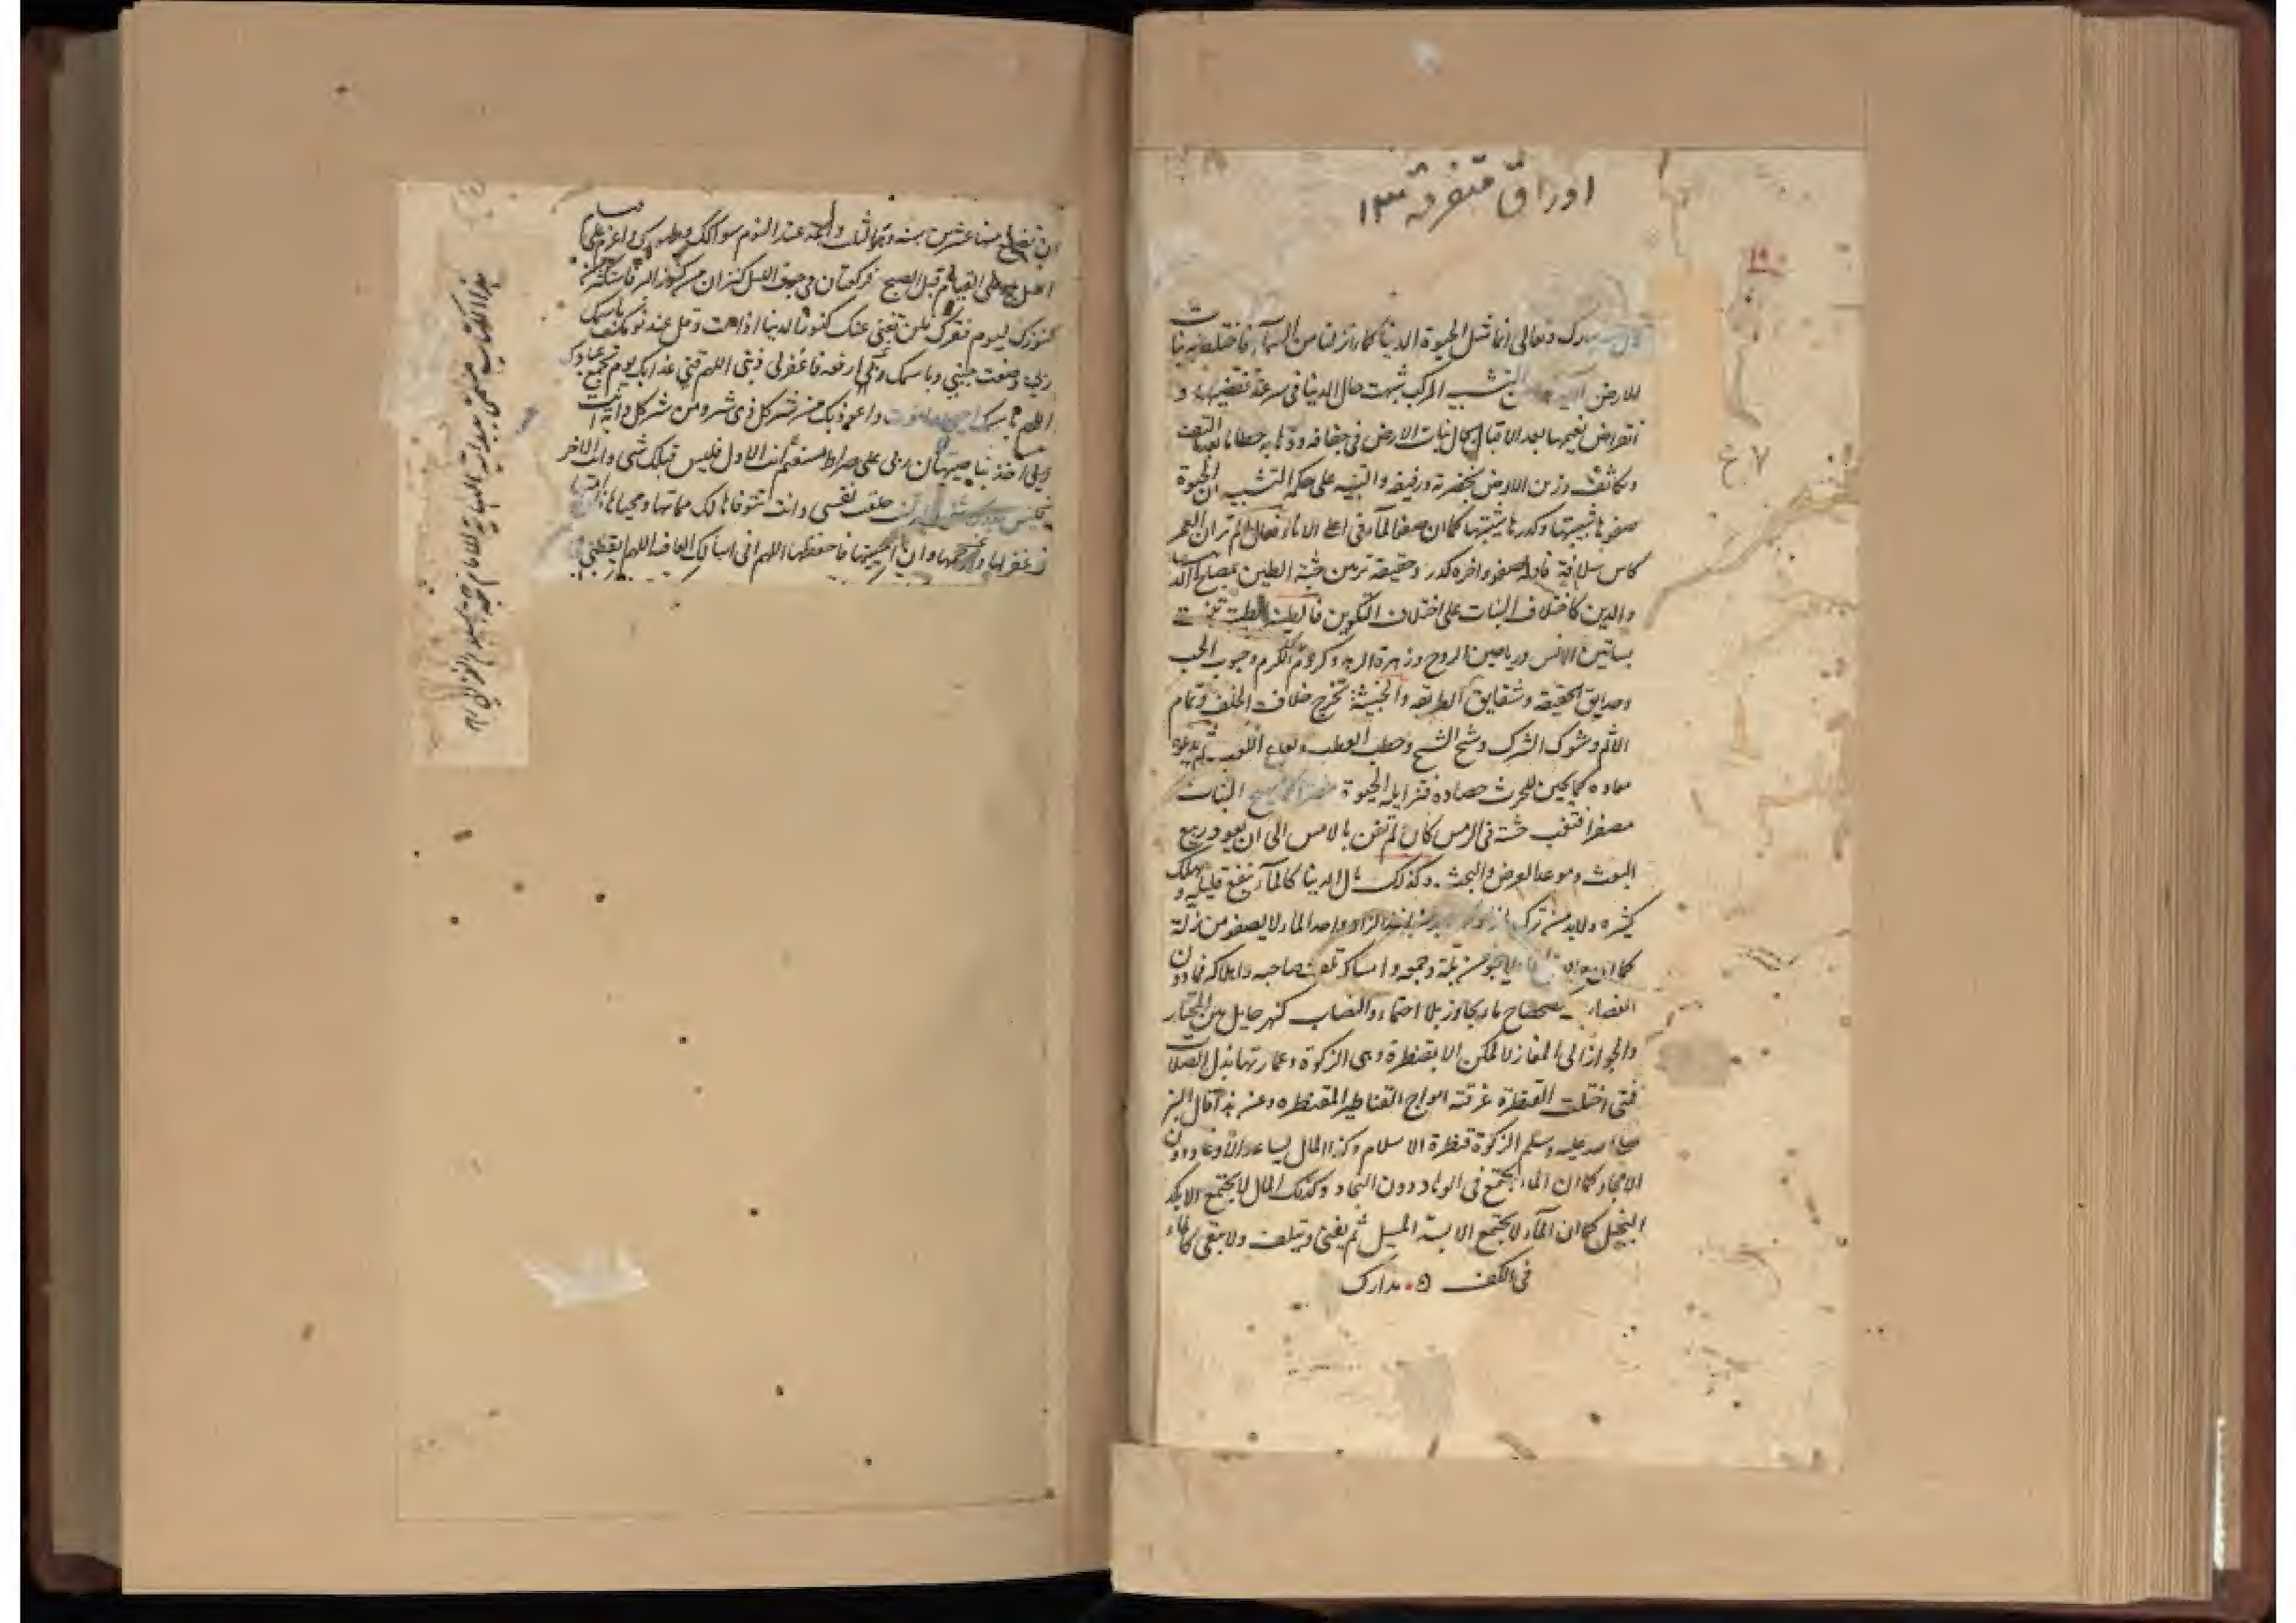 اوراق متفرقة ١٣
١٩٠
تبارك وتعالى انما مثل الحيوة الدنيا كماء انزلناه من السماء فاختلط به نبات
الارض الآية التشبيه المركب شبهت حال الدنيا فى سرعة تقضيها و
انقراض نعيمها بعد الاقبال بحال نبات الارض فى جفافه وذهابه حطاما بعد ما التف
وتكاثف وزين الارض بخضرته ورفيفه والتنبيه على حكمة التشبيه ان الحيوة
صفوها شبيبتها وكدرها شيبتها كما ان صفو الماء فى اعلى الاناء قال الم تر ان العمر
كاس سلافة فاوله صفو واخره كدر وحقيقة تزيين جثة الطين بمصالح الدنيا
والدين كاختلاف النبات على اختلاف التلوين فالطينة الطيبة تنبت
بساتين الانس ورياحين الروح وزهرة الزهد وكروم الكرم وحبوب الحب
وحدايق الحقيقة وشقايق الطريقة والخبيثة تخرج خلاف الخلف وثمام
الاثم وشوك الشرك وشيح الشح وحطب العطب ولعاع اللعب ثم يدعوه
معاده كما يحين للحرث حصاده فتزايله الحيوة كما يهيج النبات
مصفرا فتغيب جثته فى الرمس كان لم تغن بالامس الى ان يعود ربيع
البعث وموعد العرض والبحث . وكذلك حال الدنيا كالماء ينفع قليله و يهلك
كثيره ولا بد من ترك ما زاد كما لا بد من اخذ الزاد واخذ الماء لا يصفو من زلة
كما ان لا ينجو من بلة وجمعه وامساكه تلف صاحبه واهلاكه فما دون
النصاب كضحضاح ماء يجاوز بلا احتماء والنصاب كنهر حايل بين المجتاز
والجواز الى المفاز لا يمكن الا بقنطرة وهى الزكوة وعمارتها بذل الصلات
فمتى اختلت القنطرة غرقته امواج القناطير المقنطرة وعن هذا قال النبى
صلى الله عليه وسلم الزكوة قنطرة الاسلام وكذا المال يساعد الاوغاد دون
الامجاد كما ان الماء يجتمع فى الوهاد دون النجاد وكذلك المال لا يجتمع الا بكد
البخيل كما ان الماء لا يجتمع الا بسد المسيل ثم يفنى ويتلف ولا يبقى كالماء
فى الكف ٥ . مدارك
٧ ع
عند النوم سواكك وطهورك واعزم على قيام
الليل على القيام قبل الصبح فركعتان فى جوف الليل كنزان من كنوز البر فاستكثر من
كنوزك ليوم فقرك فلن تغنى عنك كنوز الدنيا اذا مت وقل عند نومك باسمك
ربى وضعت جنبى وباسمك ارفعه فاغفر لى ذنبى اللهم قنى عذابك يوم تجمع عبادك
اللهم باسمك احيى واموت واعوذ بك من شر كل ذى شر ومن شر كل دابة انت
اخذ بناصيتها ان ربى على صراط مستقيم انت الاول فليس قبلك شئ وانت الاخر
فليس بعدك شئ خلقت نفسى وانت تتوفاها لك مماتها ومحياها ان امتها
فاغفر لها وارحمها وان احييتها فاحفظها اللهم انى اسالك العافية اللهم ايقظنى